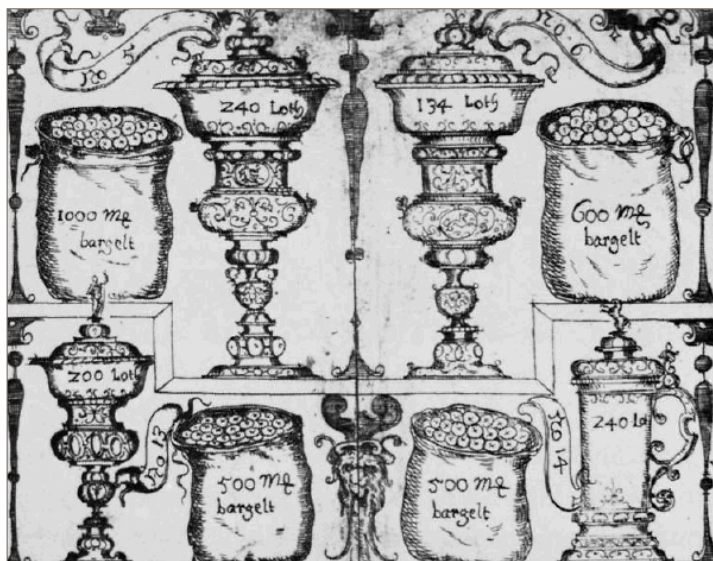 No 5
No 6
240 Loth
134 Loth
1000 mq
bargelt
600 mq
bargelt
200 Lot
No 13
500 mq
bargelt
500 mq
bargelt
No 14
240 Lo